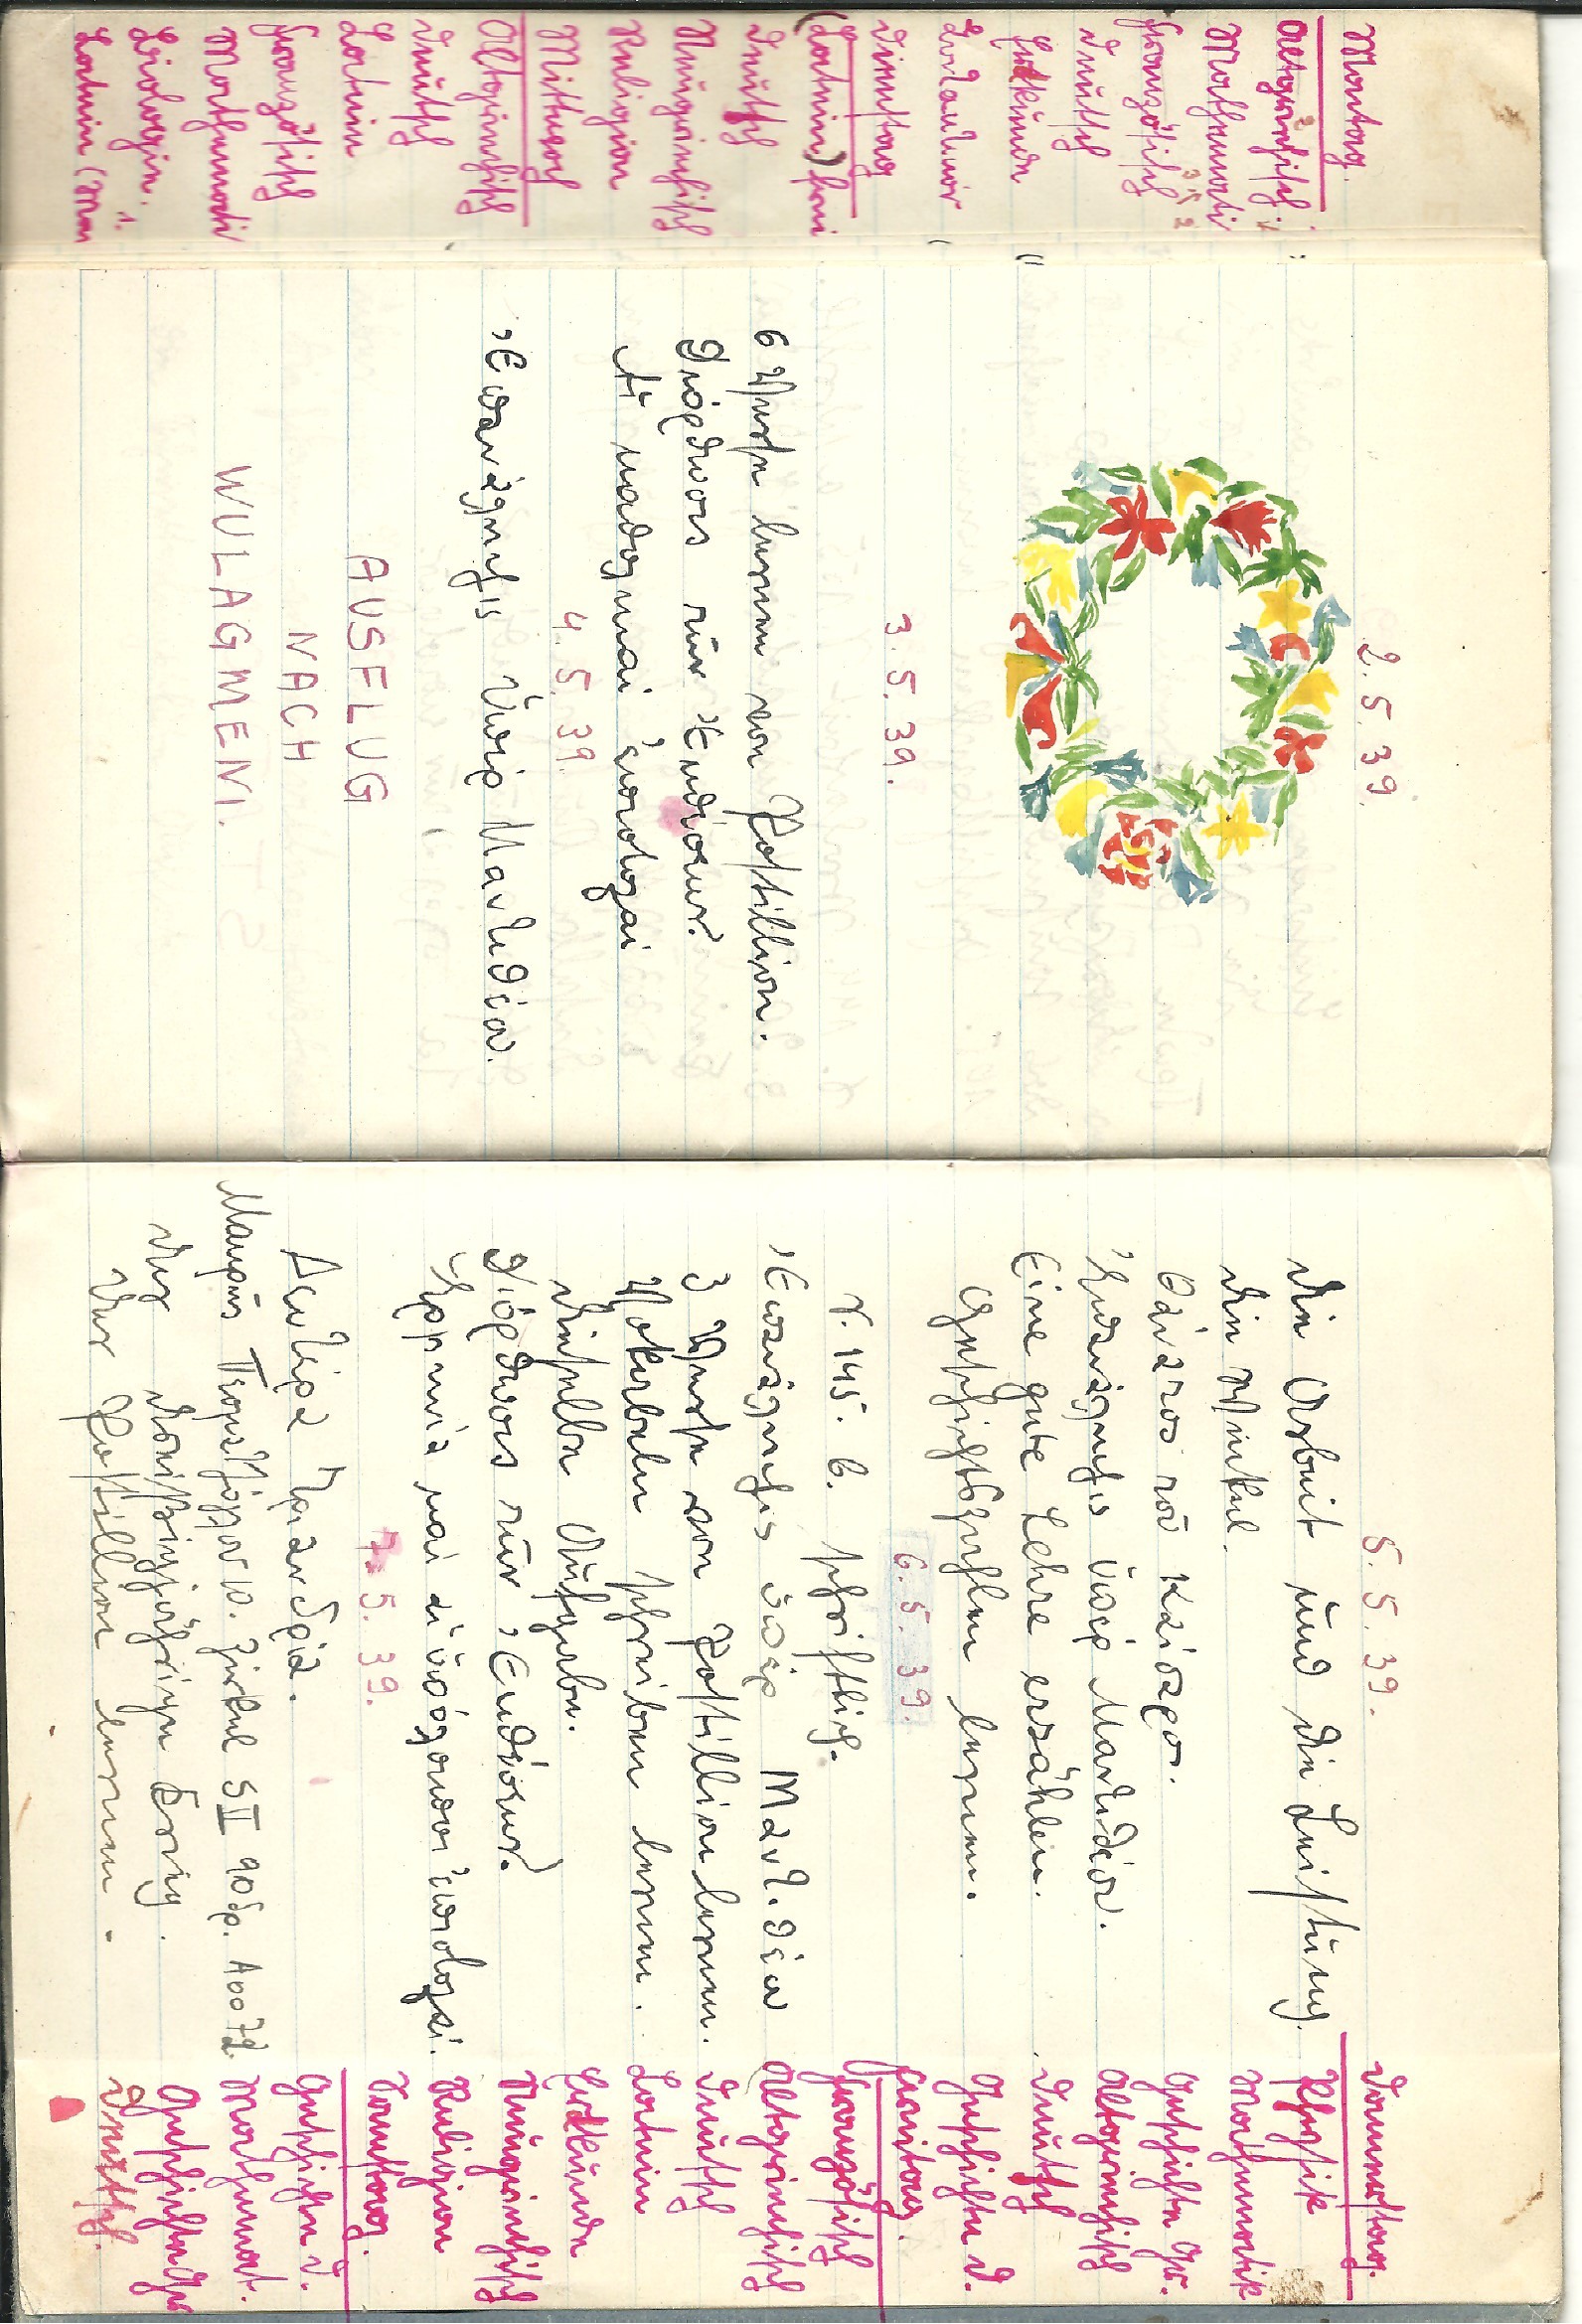 Montag.
Altgriechisch.
Mathemati
Französisch
Deutsch
Erdkunde
Dienstag
(Latein) frei
Deutsch
Neugriechisch
Religion
Mittwoch
Altgriechisch
Deutsch
Latein
Französisch
Mathemati
Biologie.
Latein (Mon
2. 5. 39.
3. 5. 39.
6 Verse lernen von Postillion.
Διόρθωσις τῶν Ἐκθέσεων.
Αἱ καθολικαὶ ἐπιστολαὶ
4. 5. 39.
Ἐπανάληψις Ὑπὲρ Μαντιθέου.
AUSFLUG
NACH
WULAGMENI.
5. 5. 39.
Die Arbeit und die Leistung.
Die Winkel.
Θάνατος τοῦ Καίσαρος.
Ἐπανάληψις ὑπέρ Μαντιθέου.
Eine gute Lehre erzählen.
Geschichtszahlen lernen.
6. 5. 39.
S. 145. 6. schriftlich.
Ἐπανάληψις ὑπέρ Μαντιθέου
3 Verse von Postillion lernen.
Vokabeln schreiben lernen.
Dieselbe Aufgabe.
Διόρθωσις τῶν Ἐκθέσεων.
καὶ αἱ ὑπόλοιποι ἐπιστολαί.
7. 5. 39.
Δευτέρα Τριανδρία.
10. Zirkel S II 90 δρ.
Der Dreißigjährige Krieg.
Der Postillion lernen.
Donnerstag.
Physik
Mathematik
Geschichte Gr.
Altgriechisch
Deutsch
Geschichte D.
Freitag.
Französisch
Altgriechisch
Deutsch
Latein
Erdkunde
Neugriechisch
Religion
Samstag.
Geschichte D.
Mathemat.
Geschichte Gr
Deutsch.